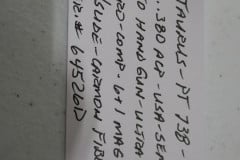 TAURUS - PT 738 -
.380 ACP - USA - SEM
O HAND GUN - ULTRA
RO - COMP. 6+1 MAG
LIDE - CARBON FIB
# 64526D